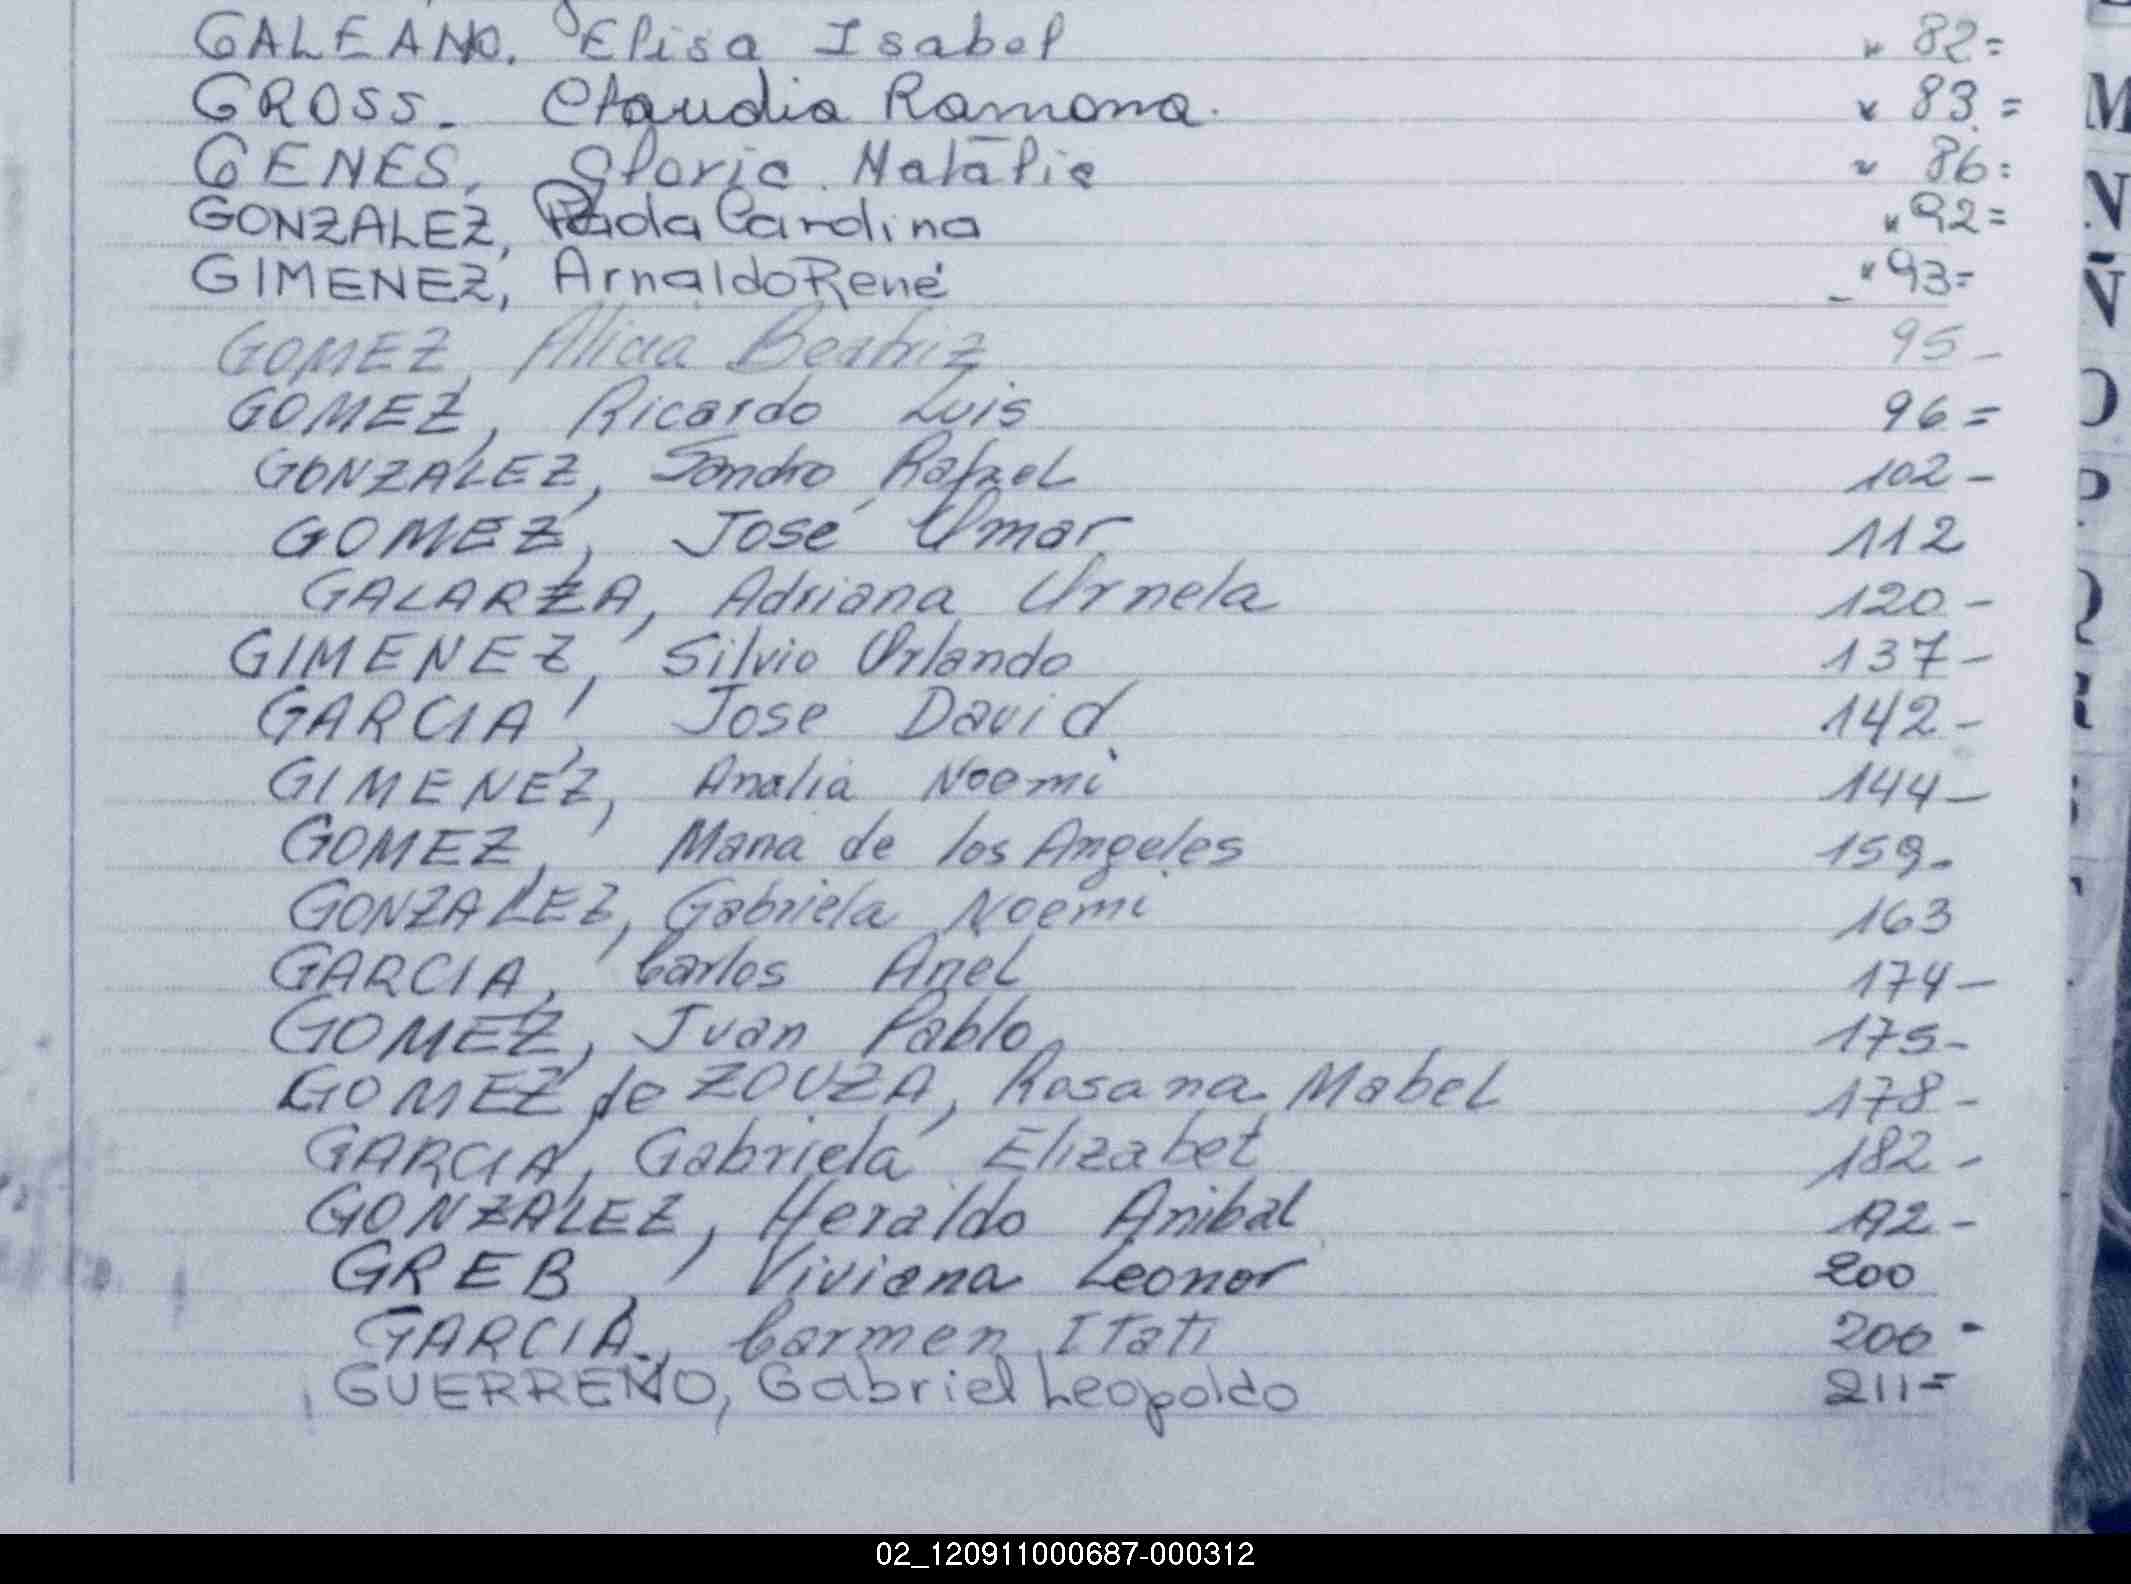 GALEANO. Elisa Isabel " 82=
GROSS. Claudia Ramona. " 83.=
GENES, Gloria Natalia " 86=
GONZALEZ, Paola Carolina " 92=
GIMENEZ, Arnaldo René " 93=
GOMEZ, Alicia Beatriz 95-
GOMEZ, Ricardo Luis 96=
GONZALEZ, Sandro Rafael 102-
GOMEZ, José Omar 112
GALARZA, Adriana Ornela 120-
GIMENEZ, Silvio Orlando 137-
GARCIA, Jose David 142-
GIMENEZ, Analia Noemi 144-
GOMEZ, Maria de los Angeles 159-
GONZALEZ, Gabriela Noemi 163
GARCIA, Carlos Ariel 174-
GOMEZ, Juan Pablo 175-
GOMEZ de ZOUZA, Rosana Mabel 178-
GARCIA, Gabriela Elizabet 182-
GONZALEZ, Heraldo Anibal 192-
GREB, Viviana Leonor 200
GARCIA., Carmen Itati 206-
GUERREÑO, Gabriel Leopoldo 211=
M
N
Ñ
O
P
Q
R
02_120911000687-000312